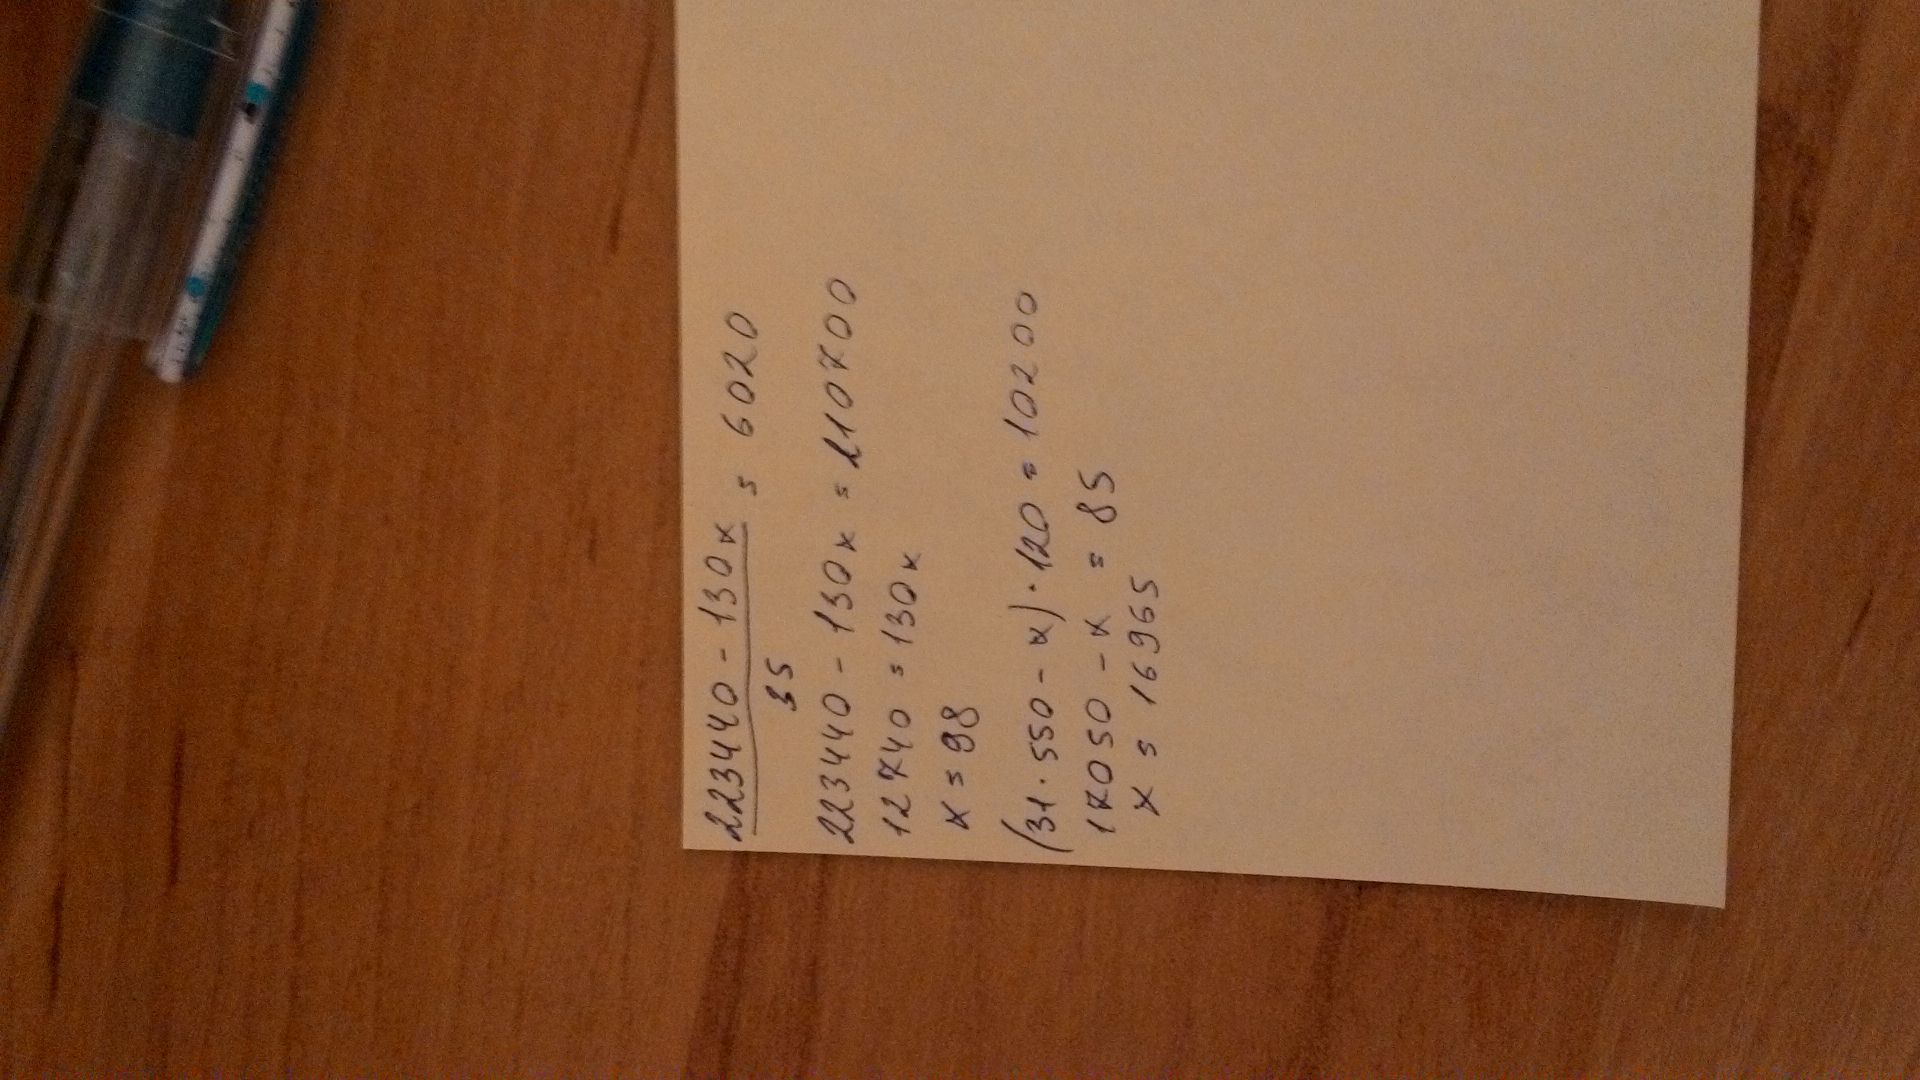 223440 - 130x = 6020
35
223440 - 130x = 210700
12740 = 130x
x = 98
(31 · 550 - x) · 120 = 10200
17050 - x = 85
x = 16965